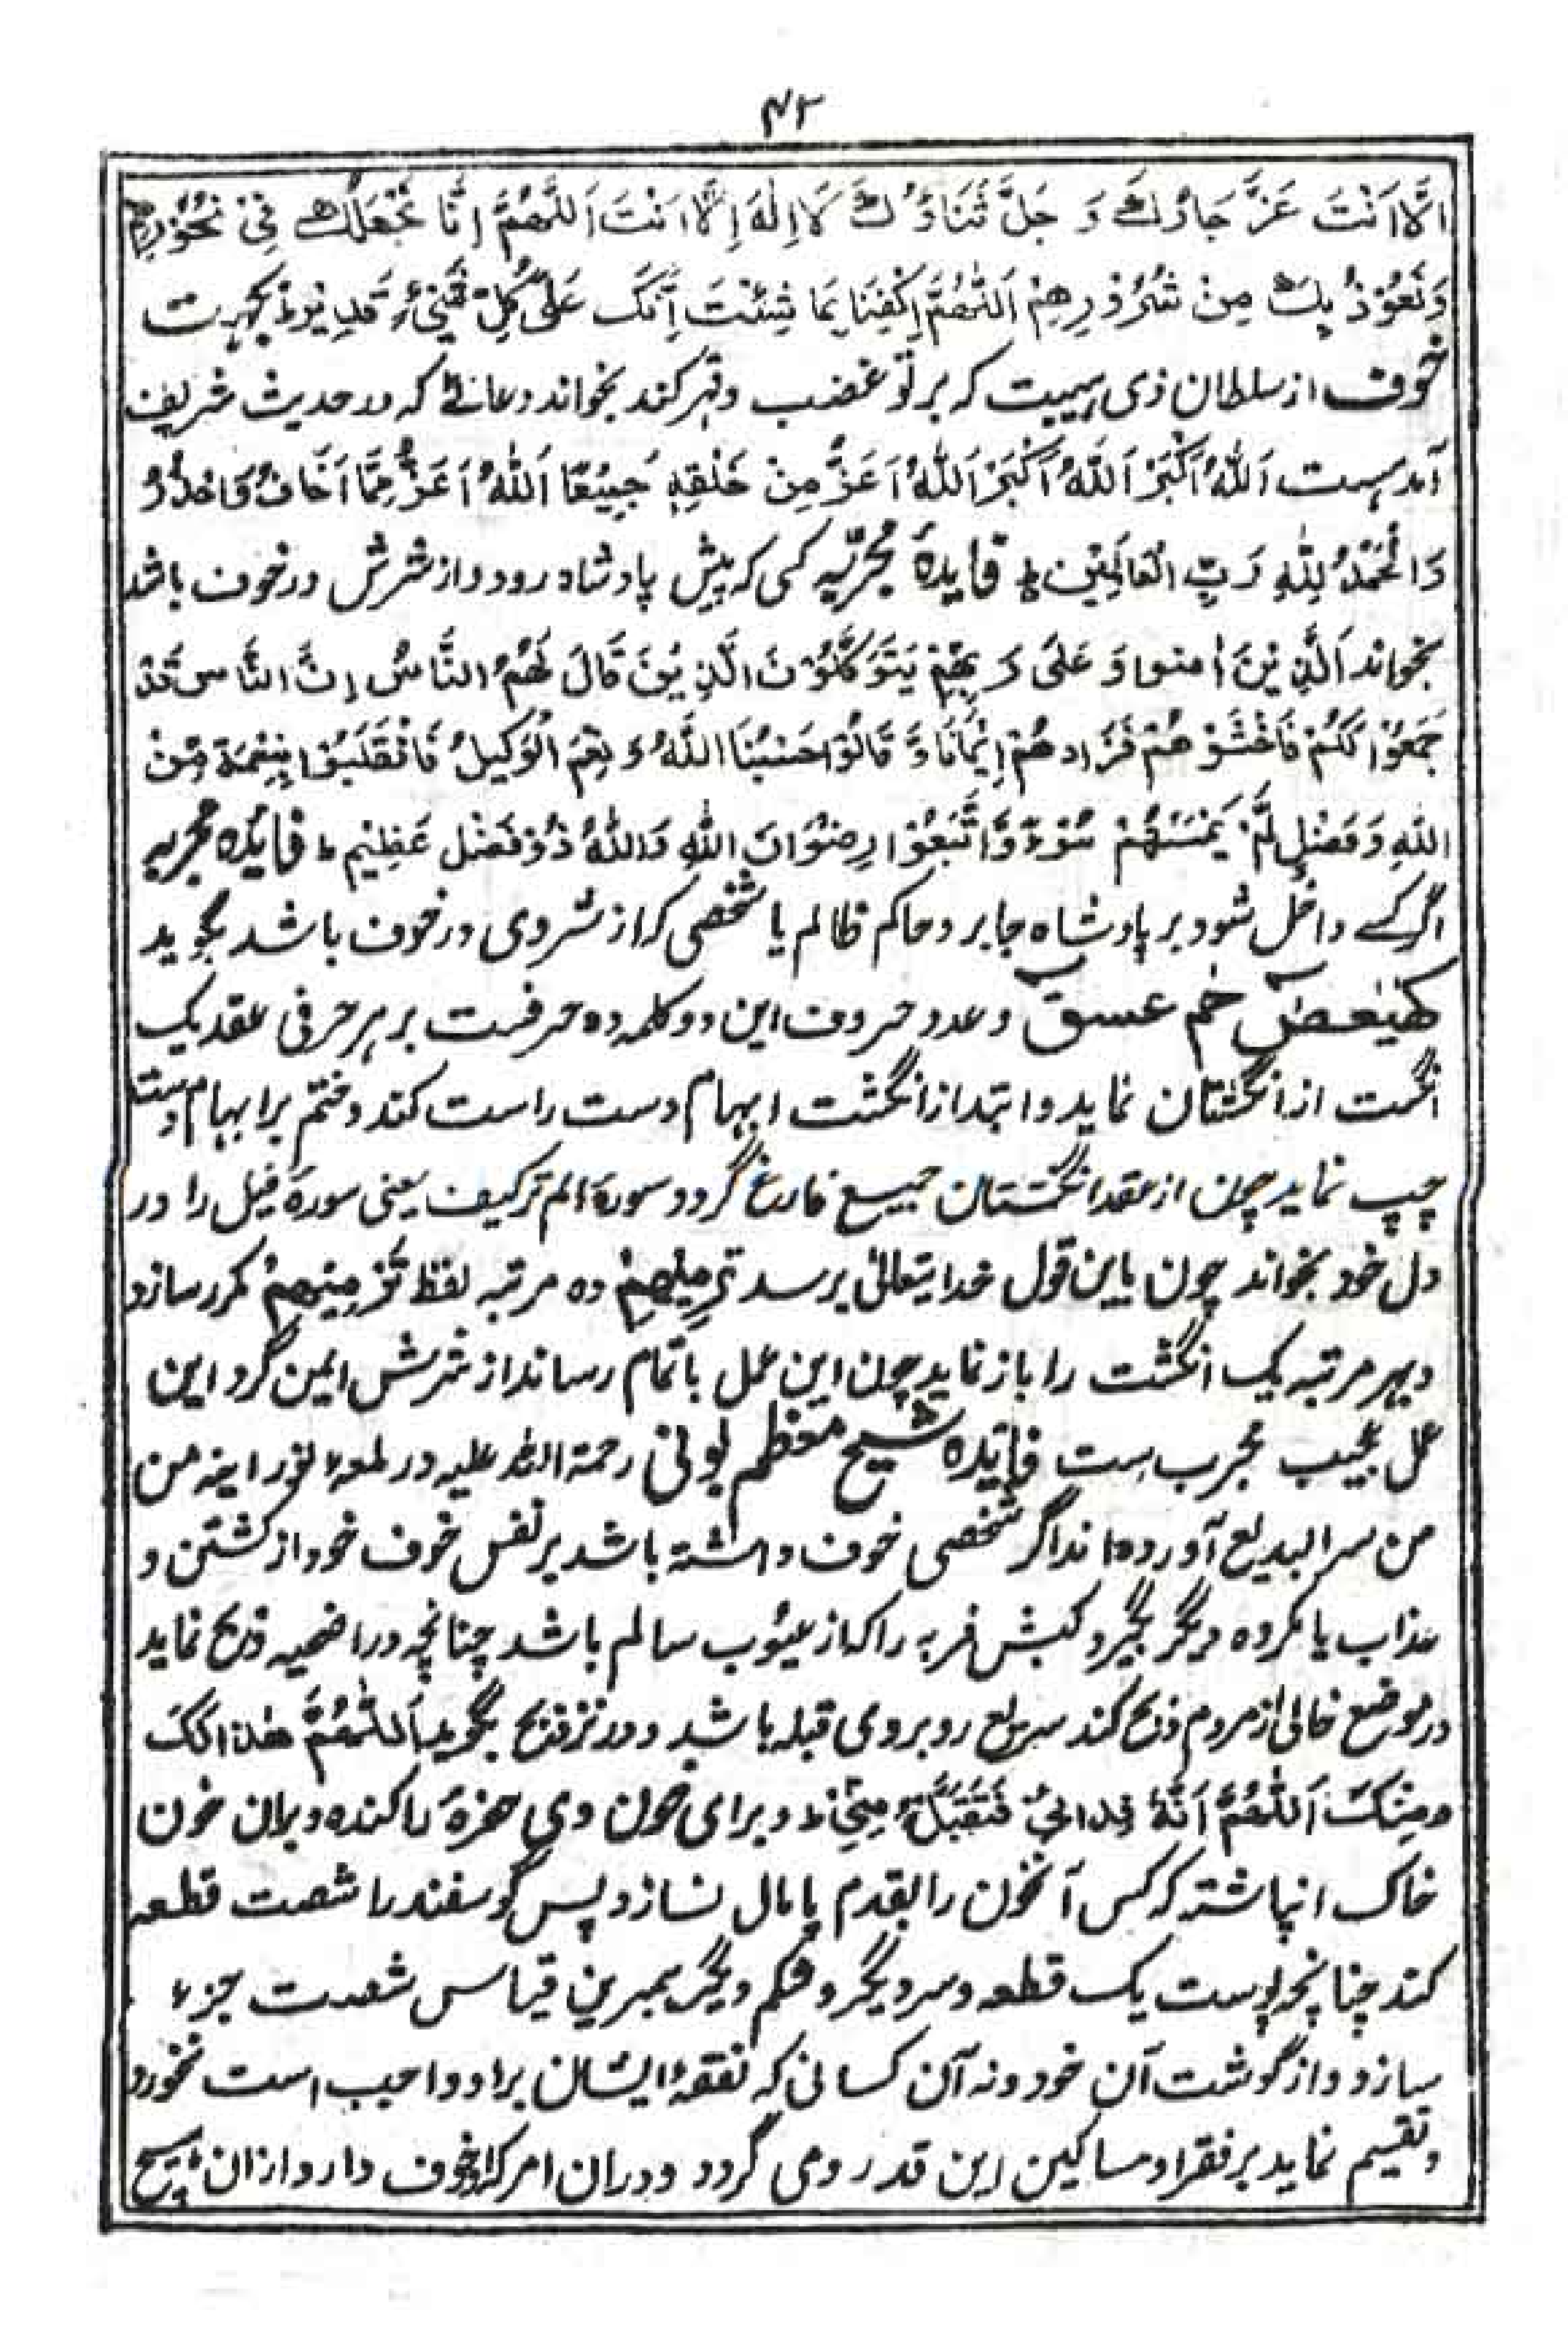 ۴۲
اِلَّا اَنْتَ عَزَّ جَارُكَ وَ جَلَّ ثَنَاؤُكَ لَا اِلٰهَ اِلَّا اَنْتَ اَللّٰهُمَّ اِنَّا نَجْعَلُكَ فِيْ نُحُوْرِهِمْ
وَنَعُوْذُ بِكَ مِنْ شُرُوْرِهِمْ اَللّٰهُمَّ اِكْفِنَا بِمَا شِئْتَ اِنَّكَ عَلٰى كُلِّ شَيْءٍ قَدِيْرٌ بجهت
خوف از سلطان ذی هیبت که بر تو غضب و قهر کند بخواند دعائے که در حدیث شریف
آمدہست اَللّٰهُ اَكْبَرْ اَللّٰهُ اَكْبَرْ اَللّٰهُ اَعَزُّ مِنْ خَلْقِهٖ جَمِيْعًا اَللّٰهُ اَعَزُّ مِمَّا اَخَافُ وَاَحْذَرُ
وَالْحَمْدُ لِلّٰهِ رَبِّ الْعَالَمِيْنَ فایدهٔ مجربه کسی که پیش پادشاه رود و از شرش در خوف باشد
بخواند اَلَّذِيْنَ اٰمنوا وَ عَلٰى رَبِّهِمْ يَتَوَكَّلُوْنَ الَّذِيْنَ قَالَ لَهُمُ النَّاسُ اِنَّ النَّاسَ قَدْ
جَمَعُوْا لَكُمْ فَاخْشَوْهُمْ فَزَادهُمْ اِيْمَانًا وَّ قَالُوْا حَسْبُنَا اللّٰهُ وَ نِعْمَ الْوَكِيْلُ فَانْقَلَبُوْا بِنِعْمَةٍ مِّنَ
اللّٰهِ وَفَضْلٍ لَّمْ يَمْسَسْهُمْ سُوْءٌ وَّاتَّبَعُوْا رِضْوَانَ اللّٰهِ وَاللّٰهُ ذُوْ فَضْلٍ عَظِيْمٍ فایده مجربه
اگر کسے داخل شود بر پادشاه جابر و حاکم ظالم یا شخصی که از شر وی در خوف باشد بگوید
كهيعص حم عسق و عدد حروف این دو کلمه ده حرفست بر هر حرفی عقد یک
انگشت از انگشتان نماید و ابتدا از انگشت ابهام دست راست کند و ختم بر ابهام دست
چپ نماید چون از عقد انگشتان جمیع فارغ گردد سوره الم ترکیف یعنی سورهٔ فیل را در
دل خود بخواند چون باین قول خدایتعالی برسد تَرْمِيْهِمْ ده مرتبه لفظ تَرْمِيْهِمْ مکرر سازد
و بهر مرتبه یک انگشت را باز نماید چون این عمل باتمام رساند از شرش ایمن گردد این
عمل عجیب مجرب ست فایده شیخ معظم بونی رحمة الله علیه در لمعه نورانیه من
من سر البدیع آورده اند اگر شخصی خوف داشته باشد بر نفس خوف خود از کشتن و
عذاب یا مکروه دیگر بگیرد کبش فربه را که از عیوب سالم باشد چنانچه در اضحیه ذبح نماید
در موضع خالی از مردم ذبح کند سریع روبروی قبله باشد و در نزد ذبح بگوید اَللّٰهُمَّ هٰذا لَكَ
ومِنْكَ اَللّٰهُمَّ اَنَّهُ فِدائيْ فَتَقَبَّلَهُ مِنِّيْ و برای خون وی حفرهٔ را کنده و بران خون
خاک انپاشته که کس آنخون را بقدم پامال نسازد پس گوسفند را شصت قطعه
کند چنانچه پوست یک قطعه و سر دیگر و شکم دیگر بمبرین قیاس شصت جزء
سازد و از گوشت آن خود و نه آن کسانی که نفقهٔ ایشان بر او واجب است نخورد
و تقسیم نماید بر فقرا و مساکین این قدر ومی گردد و دران امر که او خوف دارد ازان